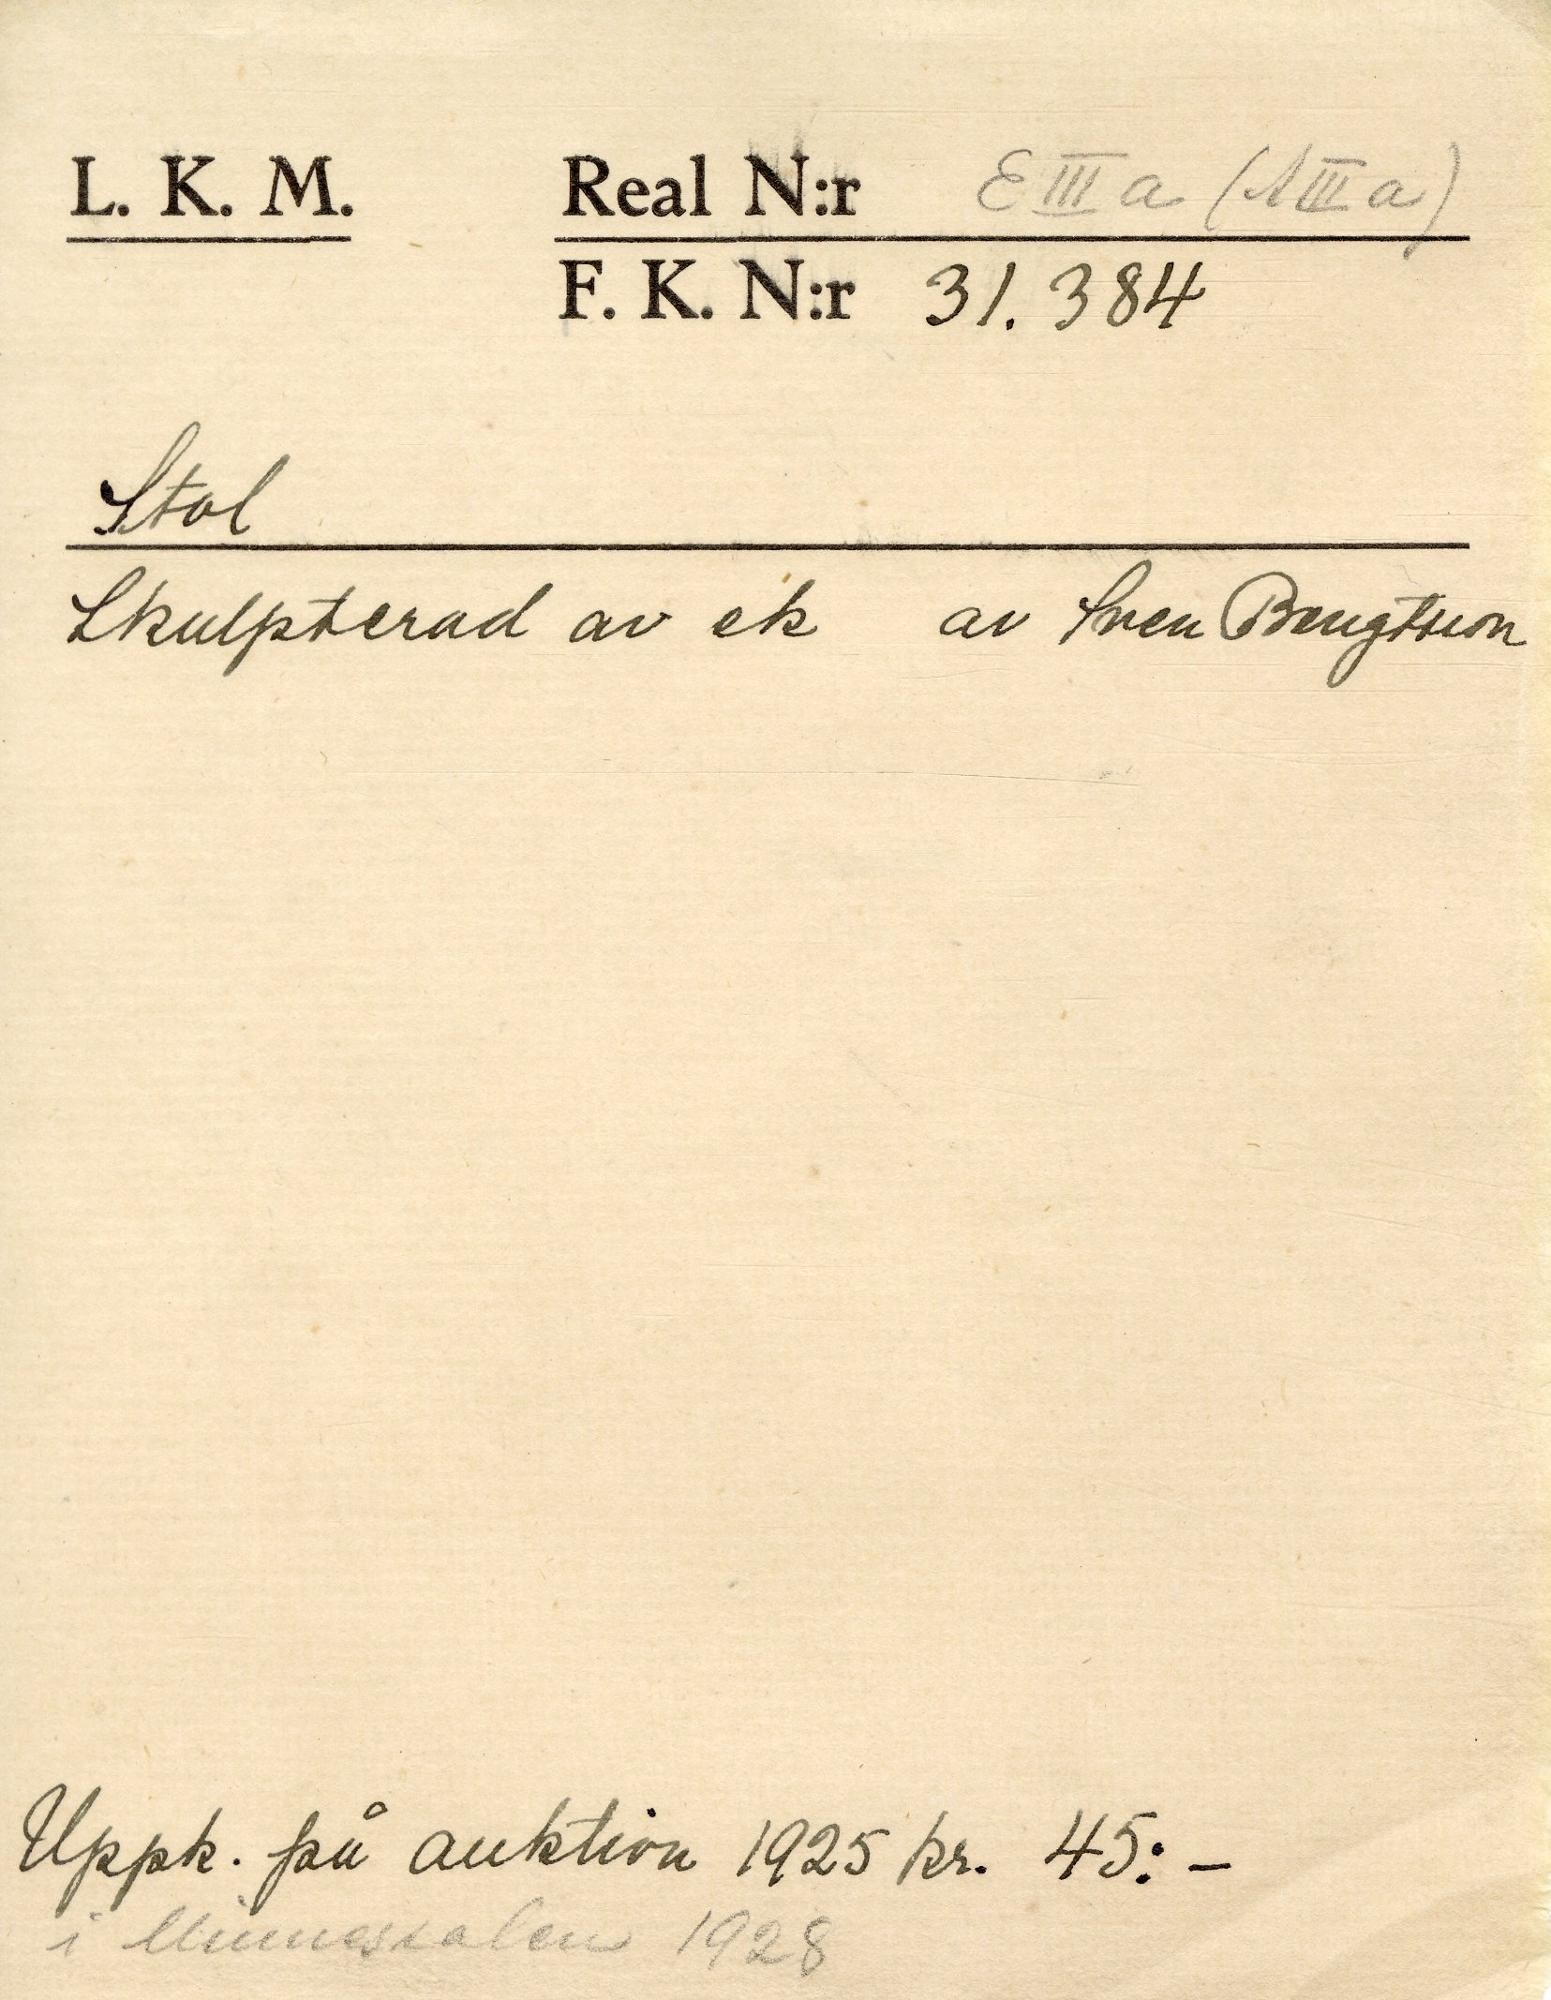 L. K. M. Real N:r E III a (A III a)
F. K. N:r 31.384
Stol
Skulpterad av ek av Sven Bengtsson
Uppk. på auktion 1925 kr. 45:-
i Minnessalen 1928